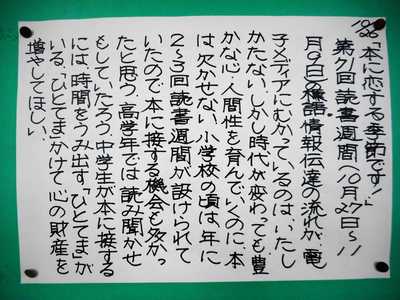 10/26
「本に恋する季節です！」
第71回読書週間(10月27〜11
月9日)標語 情報伝達の流れが、電
子メディアにむかっているのは、いたし
かたない。しかし時代が変わっても、豊
かな心、人間性を育んでいくのに、本
は欠かせない。小学校の頃は、年に
2〜3回読書週間が設けられて
いたので、本に接する機会も多かっ
たと思う。高学年では読み聞かせ
もしていたろう。中学生が本に接する
には、時間をうみ出す「ひとてま」が
いる。「ひとてま」かけて心の財産を
増やしてほしい。